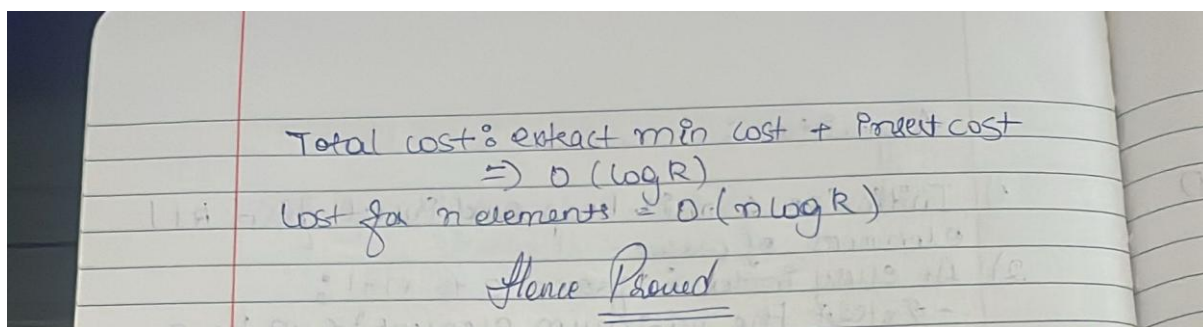 Total cost: extract min cost + insert cost
=> O(log R)
Cost for n elements = O(n log R)
Hence Proved